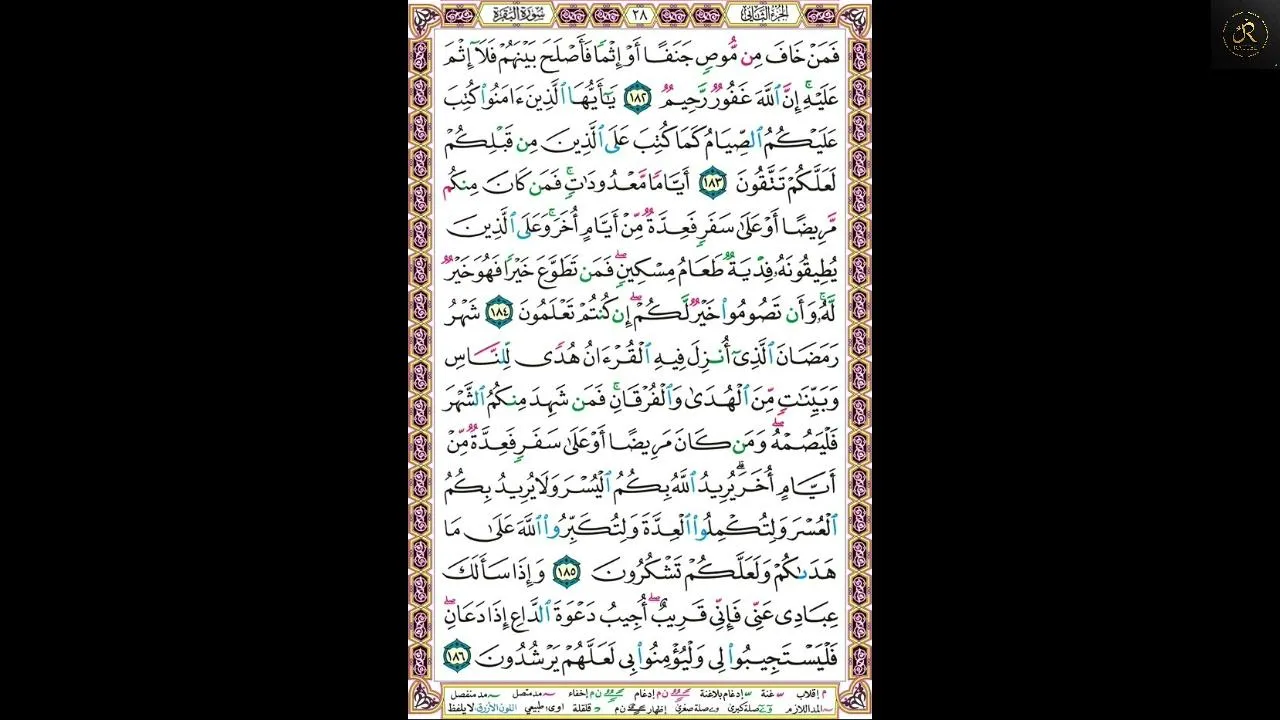 الجزء الثاني ٢٨ سورة البقرة
فَمَنْ خَافَ مِن مُّوصٍ جَنَفًا أَوْ إِثْمًا فَأَصْلَحَ بَيْنَهُمْ فَلَآ إِثْمَ
عَلَيْهِۚ إِنَّ ٱللَّهَ غَفُورٌ رَّحِيمٌ ١٨٢ يَٰٓأَيُّهَا ٱلَّذِينَ ءَامَنُوا۟ كُتِبَ
عَلَيْكُمُ ٱلصِّيَامُ كَمَا كُتِبَ عَلَى ٱلَّذِينَ مِن قَبْلِكُمْ
لَعَلَّكُمْ تَتَّقُونَ ١٨٣ أَيَّامًا مَّعْدُودَٰتٍۚ فَمَن كَانَ مِنكُم
مَّرِيضًا أَوْ عَلَىٰ سَفَرٍ فَعِدَّةٌ مِّنْ أَيَّامٍ أُخَرَۚ وَعَلَى ٱلَّذِينَ
يُطِيقُونَهُۥ فِدْيَةٌ طَعَامُ مِسْكِينٍۖ فَمَن تَطَوَّعَ خَيْرًا فَهُوَ خَيْرٌ
لَّهُۥۚ وَأَن تَصُومُوا۟ خَيْرٌ لَّكُمْۖ إِن كُنتُمْ تَعْلَمُونَ ١٨٤ شَهْرُ
رَمَضَانَ ٱلَّذِىٓ أُنزِلَ فِيهِ ٱلْقُرْءَانُ هُدًى لِّلنَّاسِ
وَبَيِّنَٰتٍ مِّنَ ٱلْهُدَىٰ وَٱلْفُرْقَانِۚ فَمَن شَهِدَ مِنكُمُ ٱلشَّهْرَ
فَلْيَصُمْهُۖ وَمَن كَانَ مَرِيضًا أَوْ عَلَىٰ سَفَرٍ فَعِدَّةٌ مِّنْ
أَيَّامٍ أُخَرَۗ يُرِيدُ ٱللَّهُ بِكُمُ ٱلْيُسْرَ وَلَا يُرِيدُ بِكُمُ
ٱلْعُسْرَ وَلِتُكْمِلُوا۟ ٱلْعِدَّةَ وَلِتُكَبِّرُوا۟ ٱللَّهَ عَلَىٰ مَا
هَدَىٰكُمْ وَلَعَلَّكُمْ تَشْكُرُونَ ١٨٥ وَإِذَا سَأَلَكَ
عِبَادِى عَنِّى فَإِنِّى قَرِيبٌۖ أُجِيبُ دَعْوَةَ ٱلدَّاعِ إِذَا دَعَانِۖ
فَلْيَسْتَجِيبُوا۟ لِى وَلْيُؤْمِنُوا۟ بِى لَعَلَّهُمْ يَرْشُدُونَ ١٨٦
م إقلاب غنة إدغام بلاغنة ن م إدغام ن م إخفاء مد متصل مد منفصل
المد اللازم صلة كبرى صلة صغرى إظهار ن م قلقلة اوى: طبيعي اللون الأزرق لا يلفظ